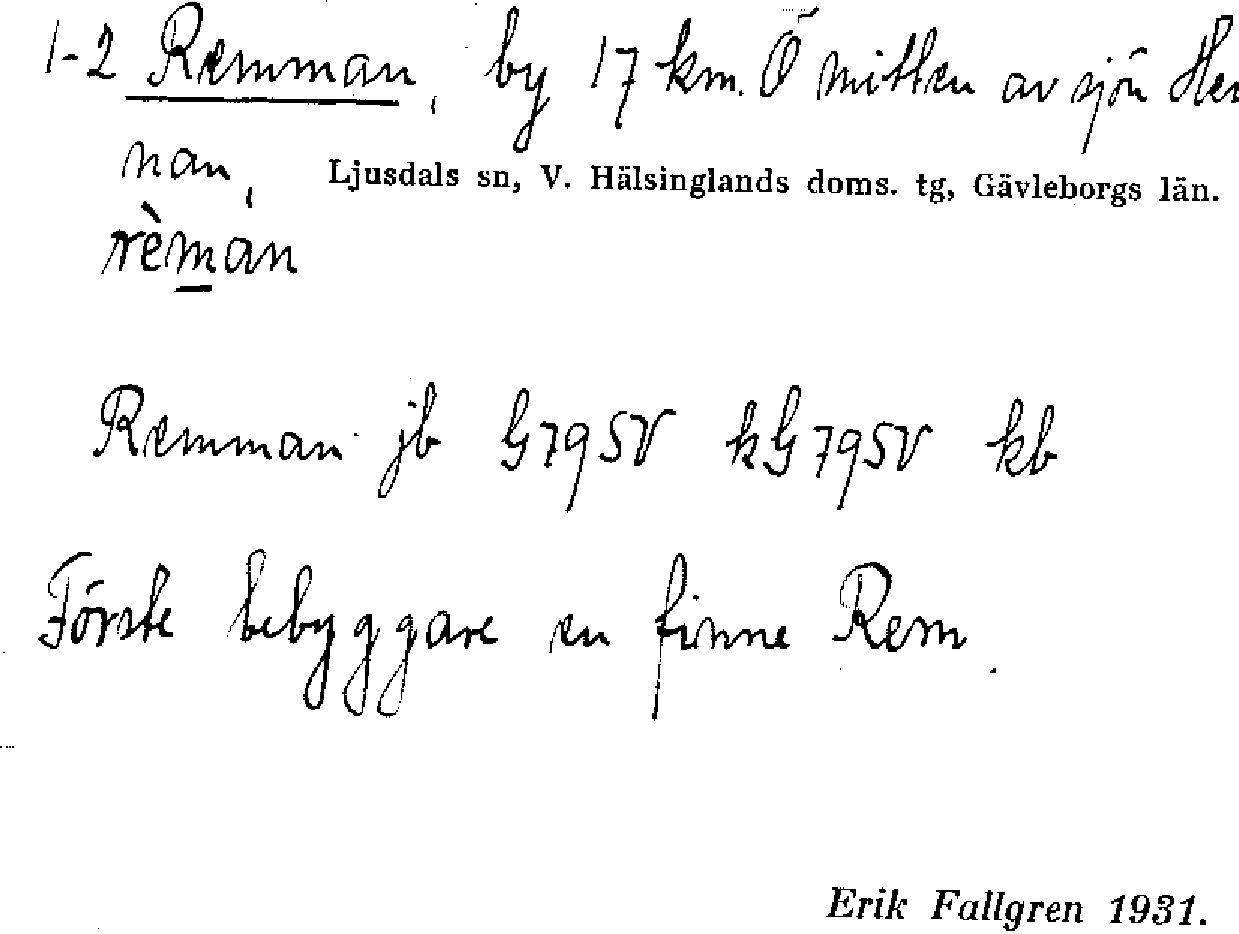 1-2 Remman, by 17 km. Ö mitten av sjön Hen
nan,
Ljusdals sn, V. Hälsinglands doms. tg, Gävleborgs län.
rèman
Remman jb G795V kG795V kb
Förste bebyggare en finne Rem.
Erik Fallgren 1931.